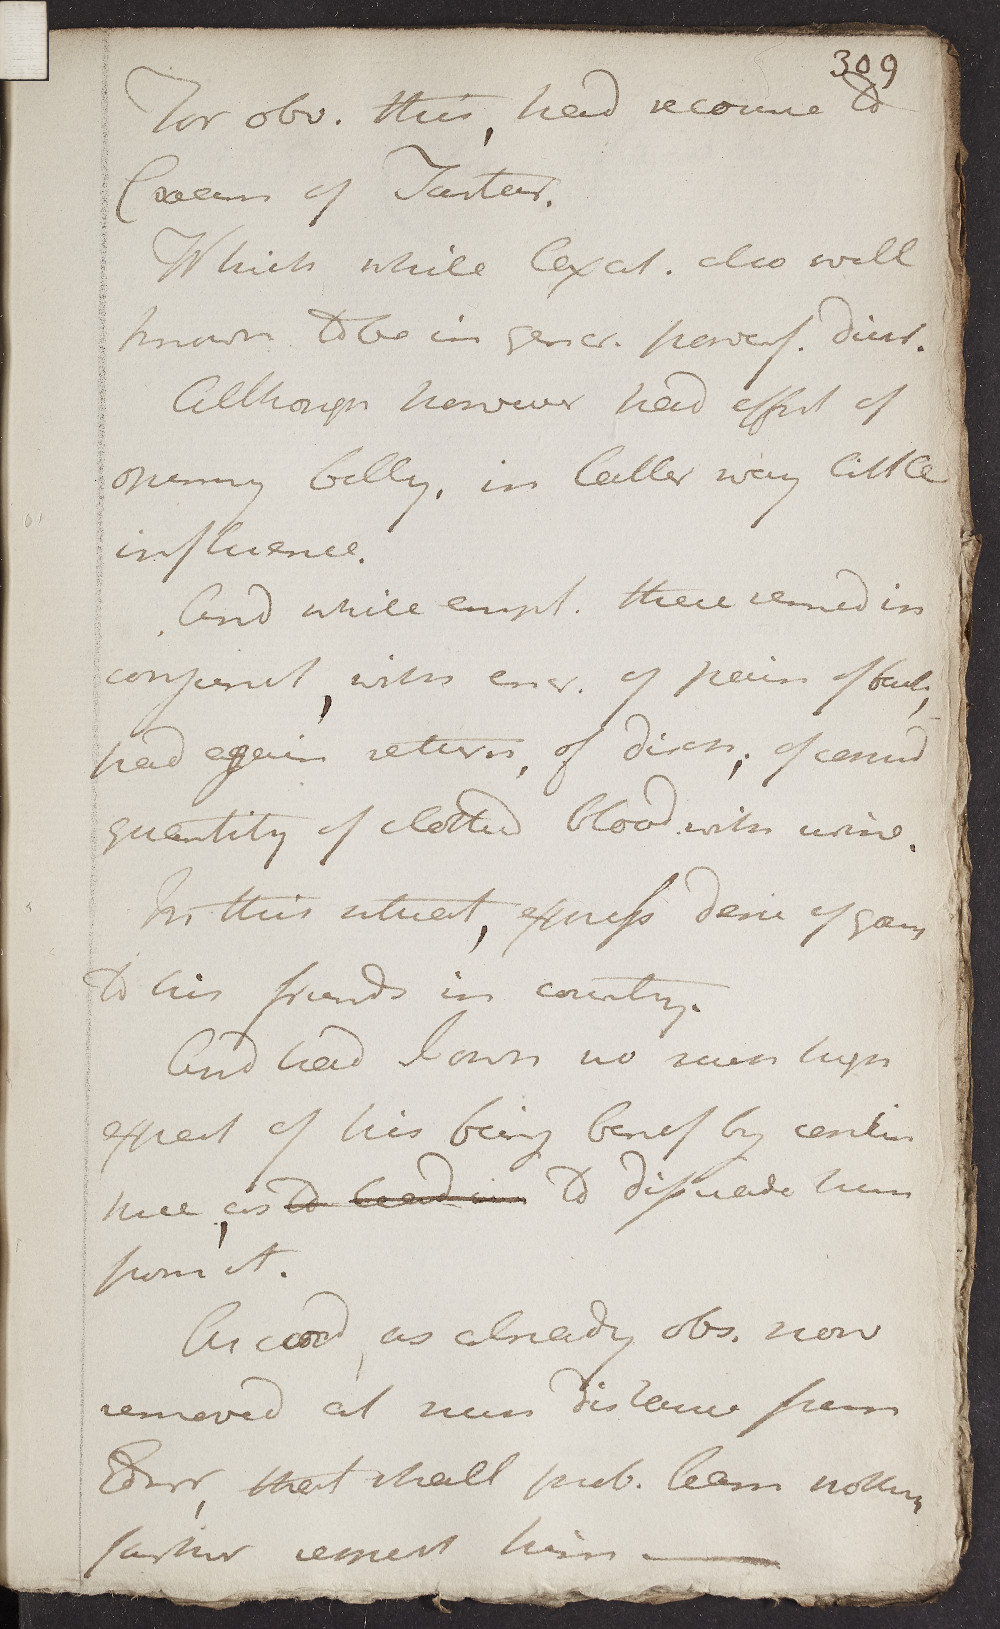 309
For obv. this, had recourse to
Cream of Tartar.
Which while laxat. also well
known to be in gener. powerf. diur.
Although however had effect of
opening belly, in latter way little
influence.
And while empl. these remed in
conjunct, with encr. of pain of back,
had again return, of disch, of consid
quantity of clotted blood with urine.
In this situat, express desire of going
to his friends in country.
And had I own no such high
expect of his being benef by contin
here, as to lead in to dissuade him
from it.
Accord, as already obs. now
removed at such distance from
Edinr, that shall prob. learn nothing
farther respect him